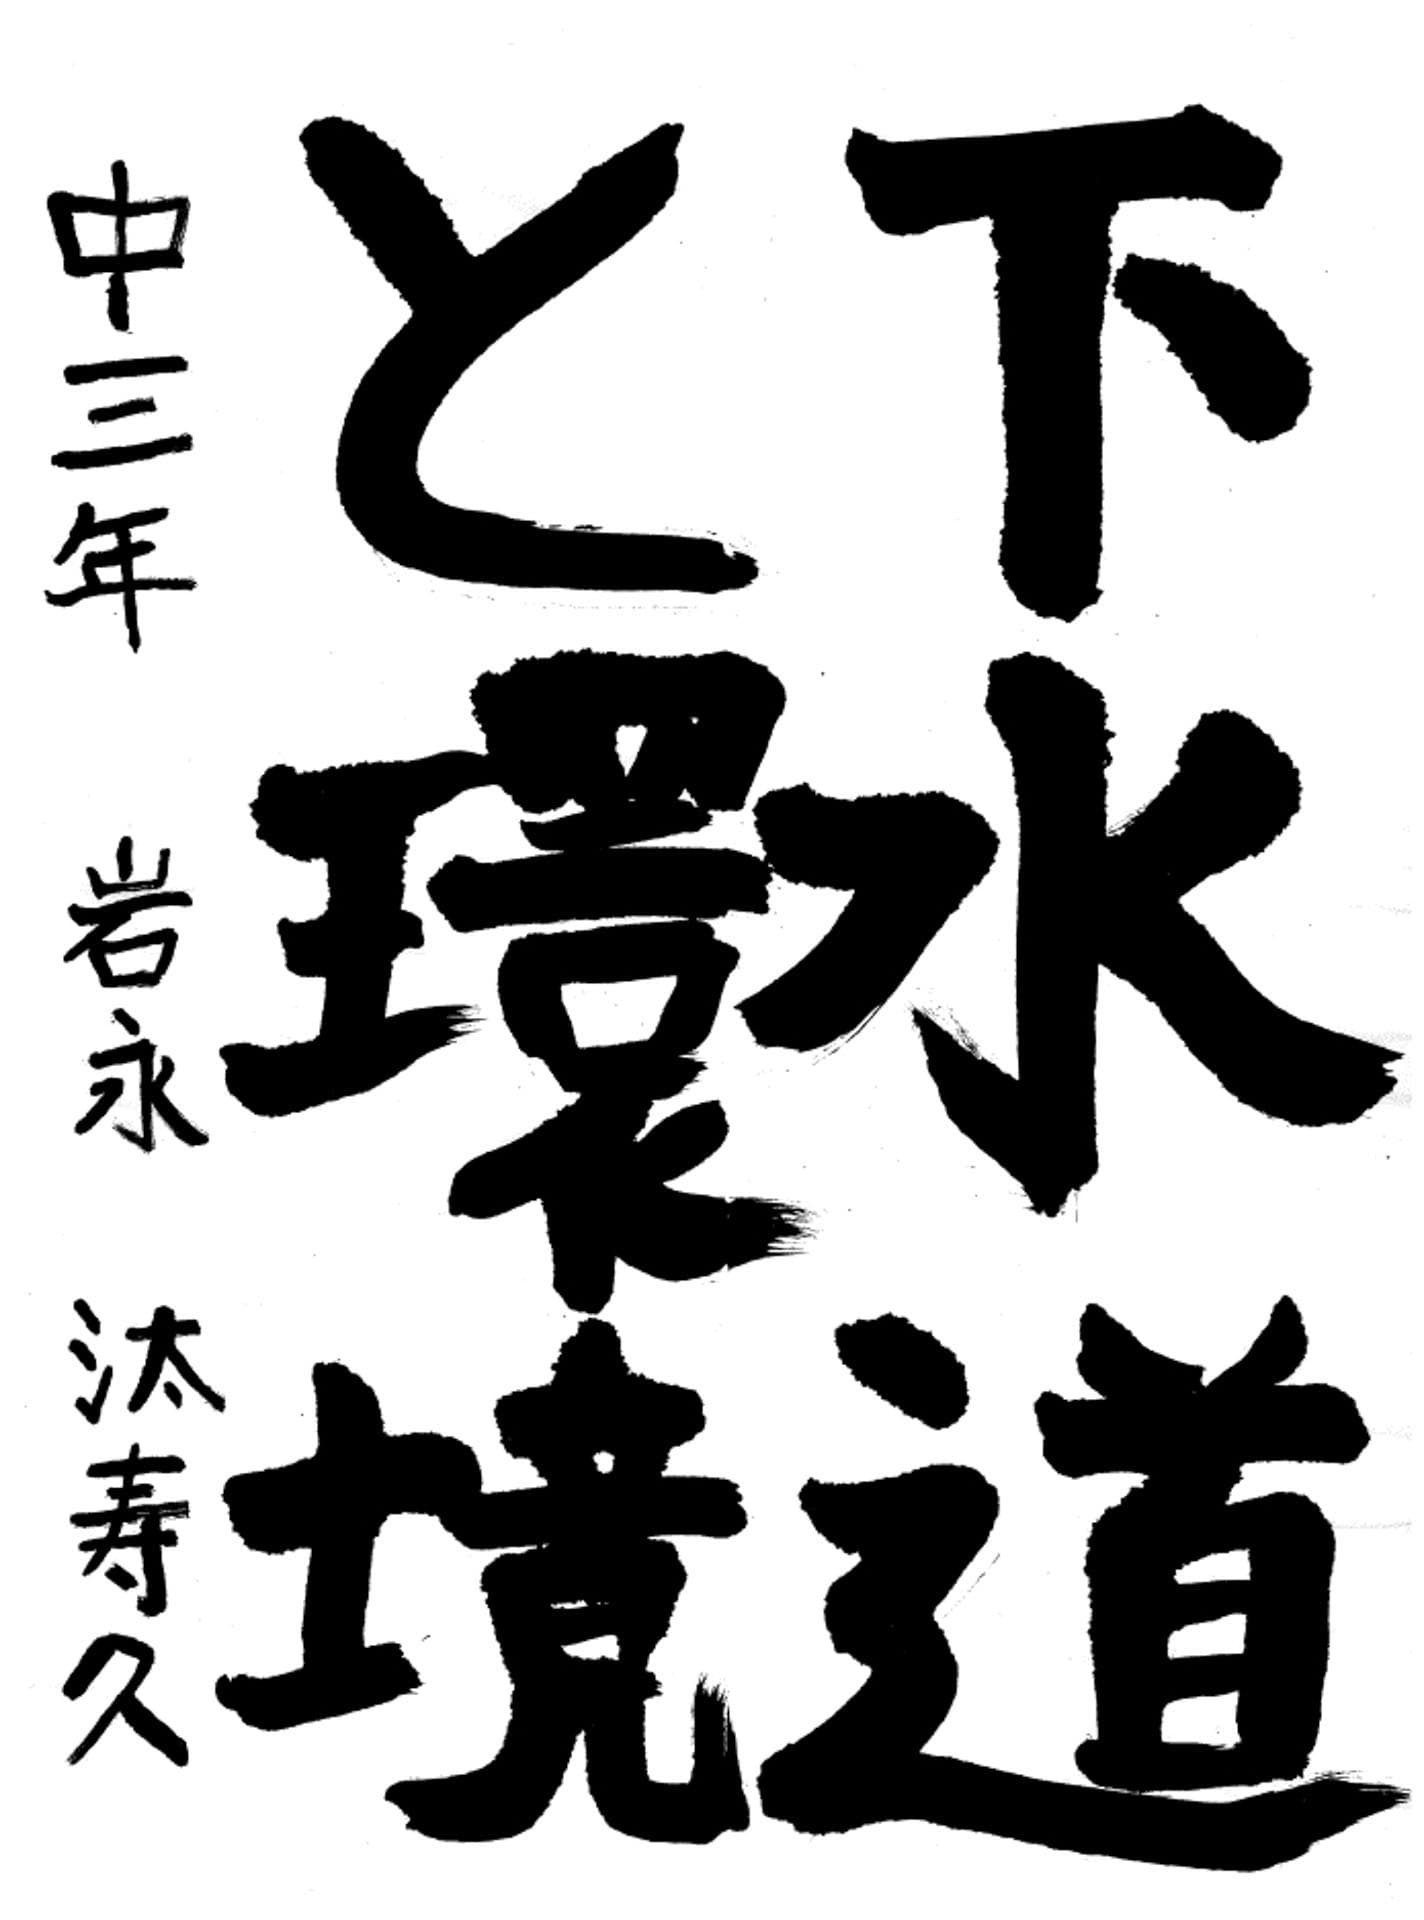 下水道
と環境
中三年 岩永 汰寿久